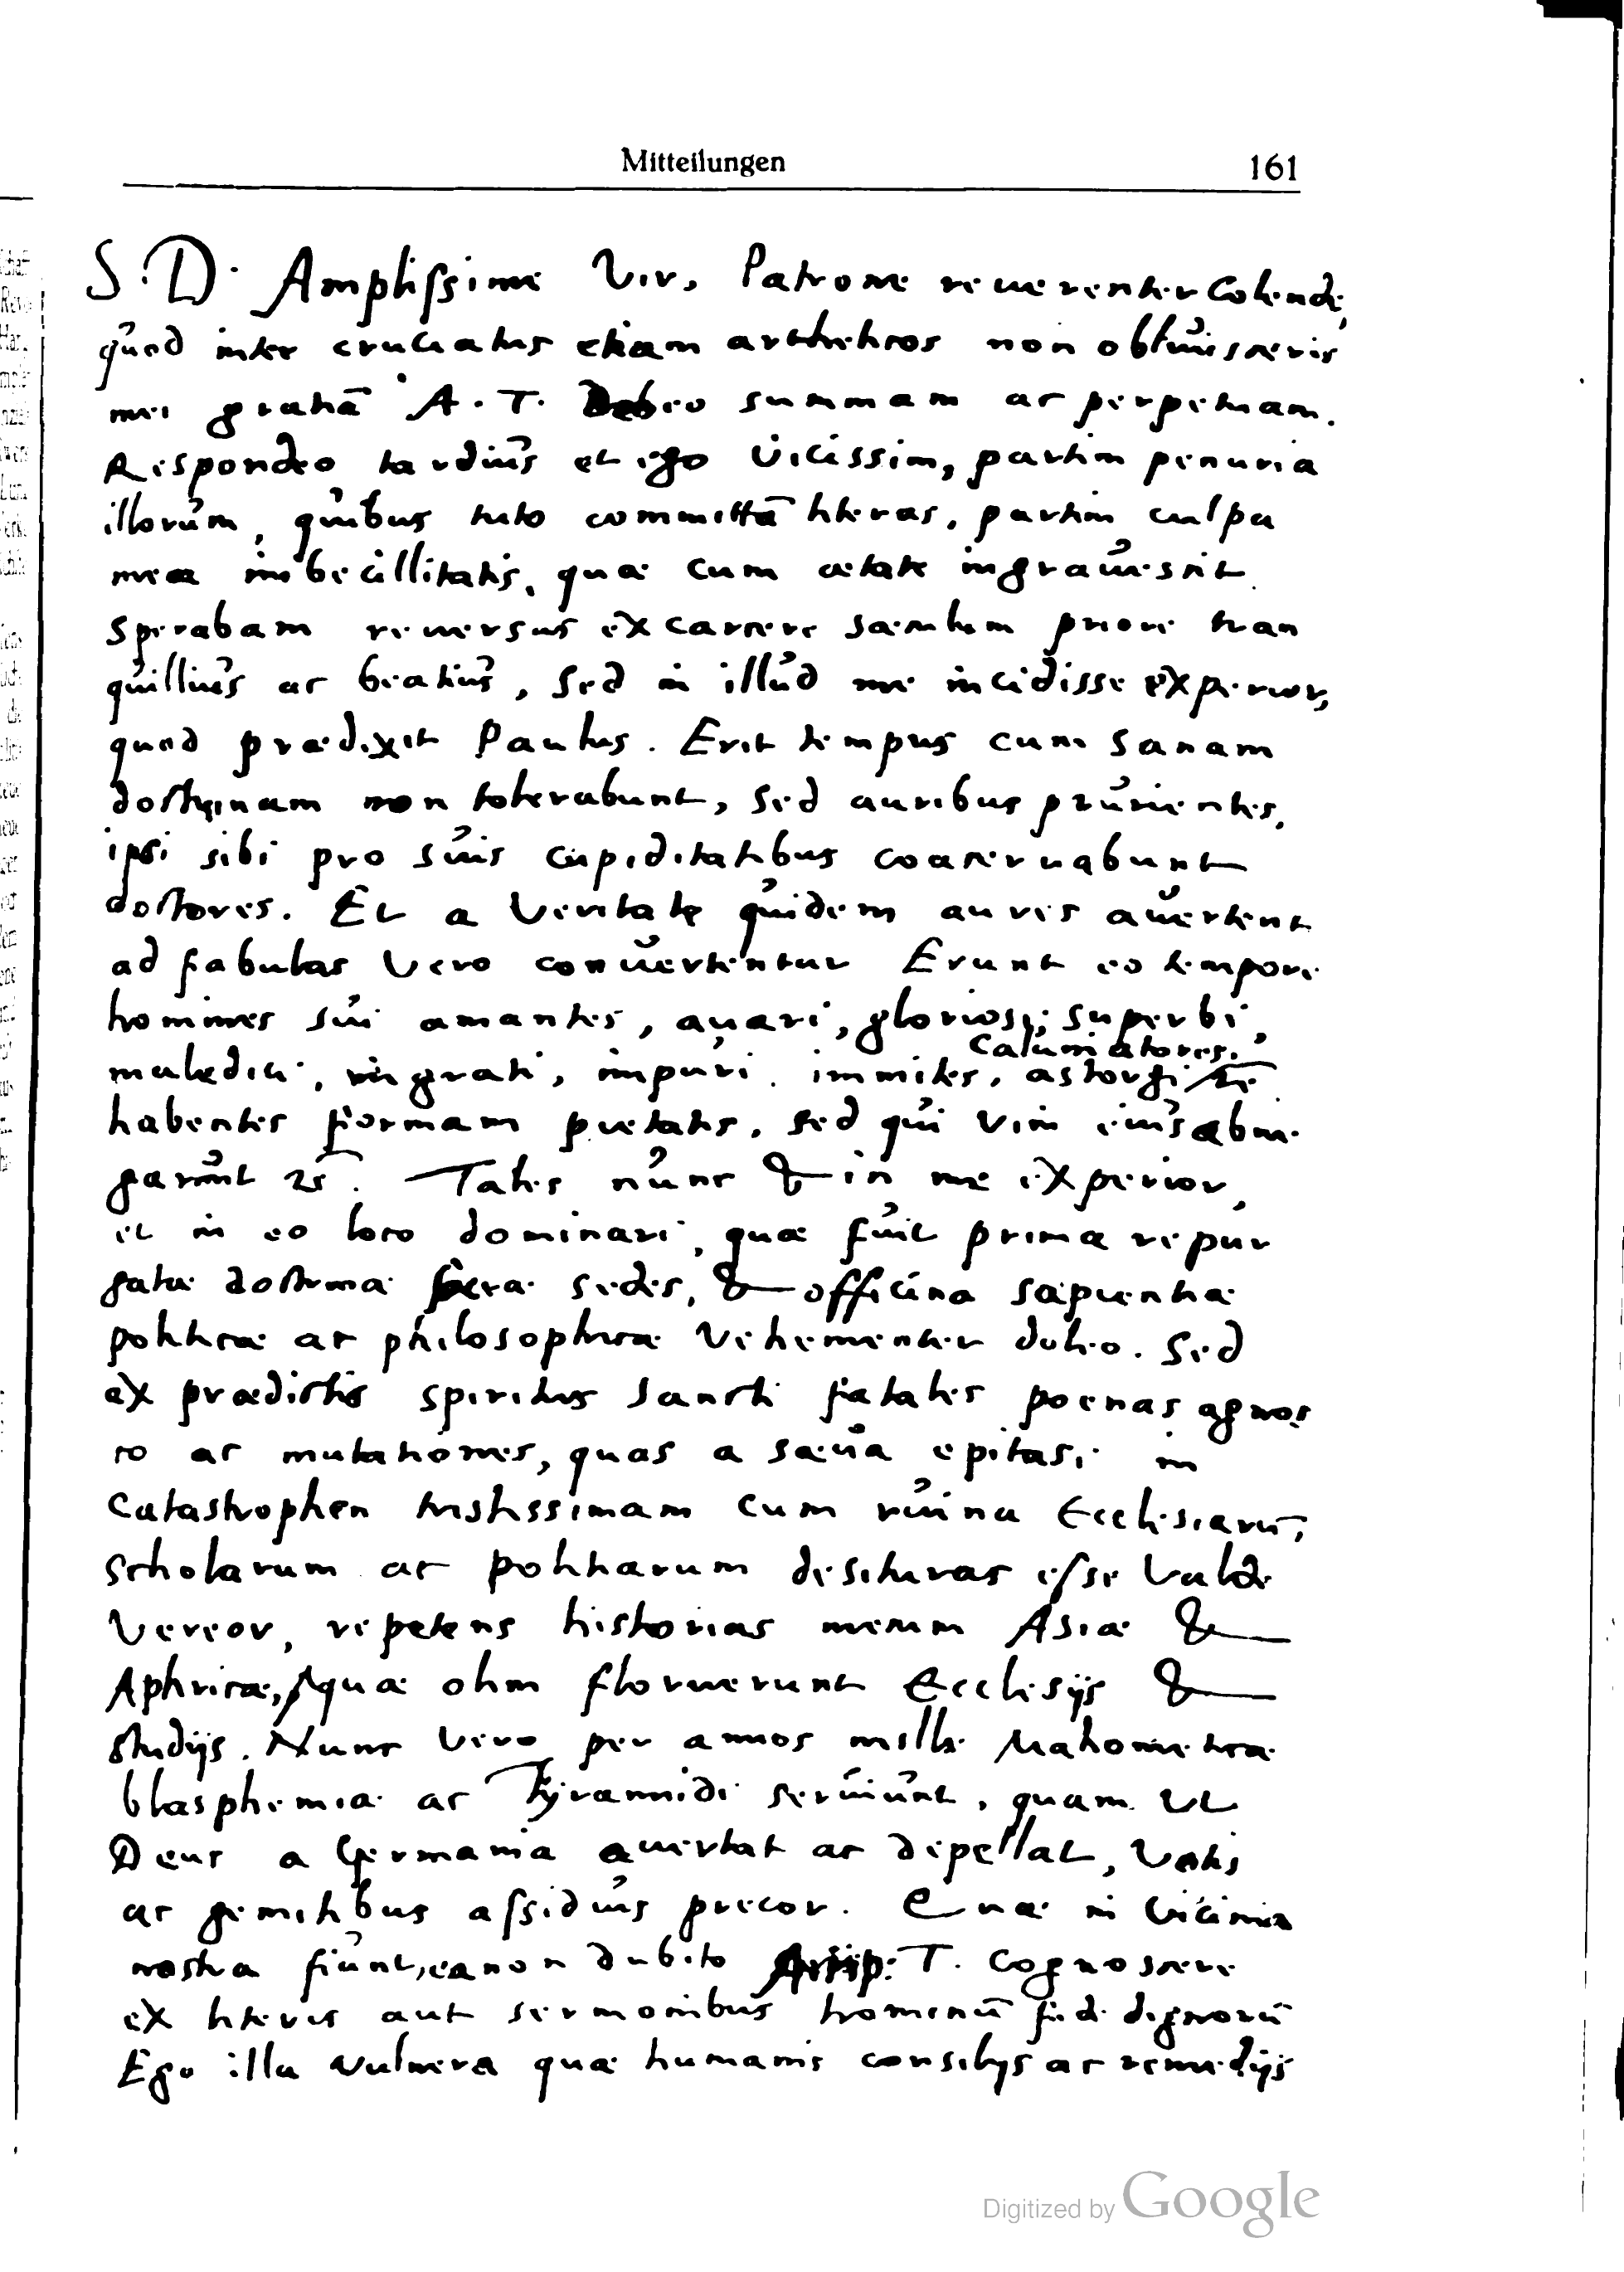 Mitteilungen 161
S. D. Amplissime Vir, Patrone reuerenter Colende,
quod inter cruciatus etiam arthriticos non obliuisceris
mei gratiā A. T. Debeo summam ac perpetuam.
Respondeo tardius et ego vicissim, partim penuria
illorum, quibus tuto committā literas, partim culpa
meæ imbecillitatis, quæ cum ætate ingrauescit.
Sperabam reuersus ex carcere sæculum priore tran
quillius ac beatius, Sed in illud me incidisse experior,
quod prædixit Paulus. Erit tempus cum Sanam
doctrinam non tolerabunt, Sed auribus prurientes,
ipsi sibi pro suis cupiditatibus coaceruabunt
doctores. Et a Veritate quidem aures auertent
ad fabulas Vero conuertentur Erunt eo tempore
homines sui amantes, auari, gloriosi, superbi,
Calumniatores.
maledici, ingrati, impuri, immites, astorgi
habentes formam pietatis, sed qui vim eius abne
garunt. Tales nunc & in me experior,
et in eo loco dominari, quæ fuit prima repur
gatæ doctrinæ sedes, & officina sapientiæ
politicæ ac philosophicæ Vehementer doleo. Sed
ex prædictis spiritus sancti fatales poenas agnos
co ac mutationes, quas a sæua epitasi in
Catastrophen tristissimam cum ruina Ecclesiarū,
Scholarum ac politiarum desituras esse Valde
Vereor, repetens historias mecum Asiæ &
Aphricæ, quæ olim floruerunt Ecclesijs &
studijs. Nunc Vero per annos mille Mahometicæ
blasphemiæ ac Tyrannidi seruiunt, quam Vt
Deus a Germania auertat ac depellat, Votis
ac gemitibus assiduis precor. Quæ in Vicinia
nostra fiunt, ea non dubito T. Cognoscere
ex literis aut sermonibus hominū fide dignorū
Ego illa vulnera quæ humanis consilijs ac remedijs
Digitized by Google